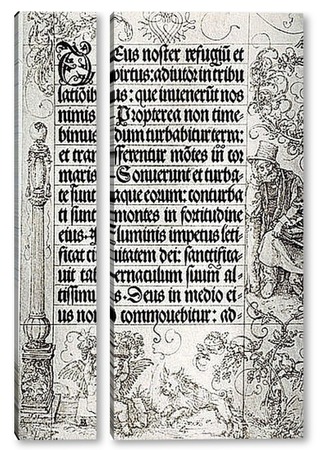 Deus noster refugiū et
virtus: adiutor in tribu
latiōibus: que inuenerūt nos
nimis. Propterea non time-
bimus dum turbabitur terra:
et transferentur mōtes in cor
maris. Sonuerunt et turba-
te sunt aque eorum: conturba
ti sunt montes in fortitudine
eius. Fluminis impetus leti
ficat ciuitatem dei: sanctifica-
uit tabernaculum suuʒ al-
tissimus. Deus in medio ei-
us non commouebitur: ad-